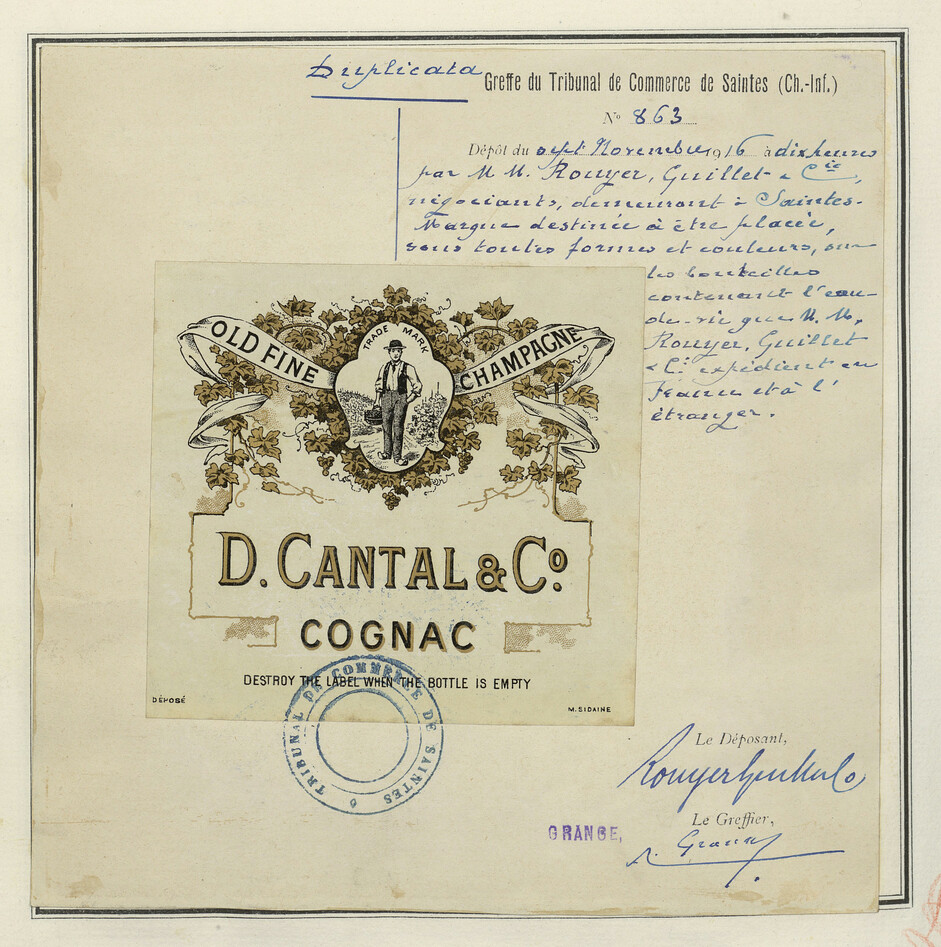 Duplicata
Greffe du Tribunal de Commerce de Saintes (Ch.-Inf.)
N° 863
Dépôt du sept Novembre 1916 à dix heures
par M M. Rouyer, Guillet & Cie,
négociants, demeurant à Saintes.
Marque destinée à être placée,
sous toutes formes et couleurs, sur
les bouteilles
contenant l'eau-
de-vie que M. M.
Rouyer, Guillet
& Cie expédient en
France et à l'
étranger.
OLD FINE CHAMPAGNE
TRADE MARK
D. CANTAL & Co
COGNAC
DESTROY THE LABEL WHEN THE BOTTLE IS EMPTY
DÉPOSÉ
M. SIDAINE
TRIBUNAL DE COMMERCE DE SAINTES
Le Déposant,
Rouyer Guillet & Co
Le Greffier,
GRANGE,